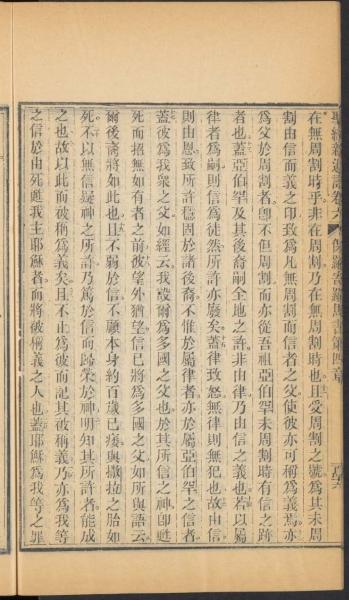 聖經新遺詔書卷六 保羅寄羅馬書第四章
在無周割時乎非在周割乃在無周割時也且受周割之號爲其未周
割由信而義之印致爲凡無周割而信者之父使彼亦可稱爲義焉亦
爲父於周割者卽不但周割而亦從吾祖亞伯罕未周割時有信之跡
者也蓋亞伯罕及其後裔嗣全地之許非由律乃由信之義也若以屬
律者爲嗣則信爲徒然所許亦廢矣蓋律致怒無律則無犯也故由信
則由恩致所許穩固於諸後裔不惟於屬律者亦於屬亞伯罕之信者
蓋彼爲我衆之父如經云我設爾爲多國之父也於其所信之神卽甦
死而招無如有者之前彼望外猶望信已將爲多國之父如所與語云
爾後裔將如此也且不弱於信不顧本身約百歲已痿與撒拉之胎如
死不以無信疑神之所許乃篤於信而歸榮於神明知其所許者能成
之也故以此而被稱爲義矣且不止爲彼而記其被稱義乃亦爲我等
之信於由死甦我主耶穌者而將被稱義之人也蓋耶穌爲我等之罪